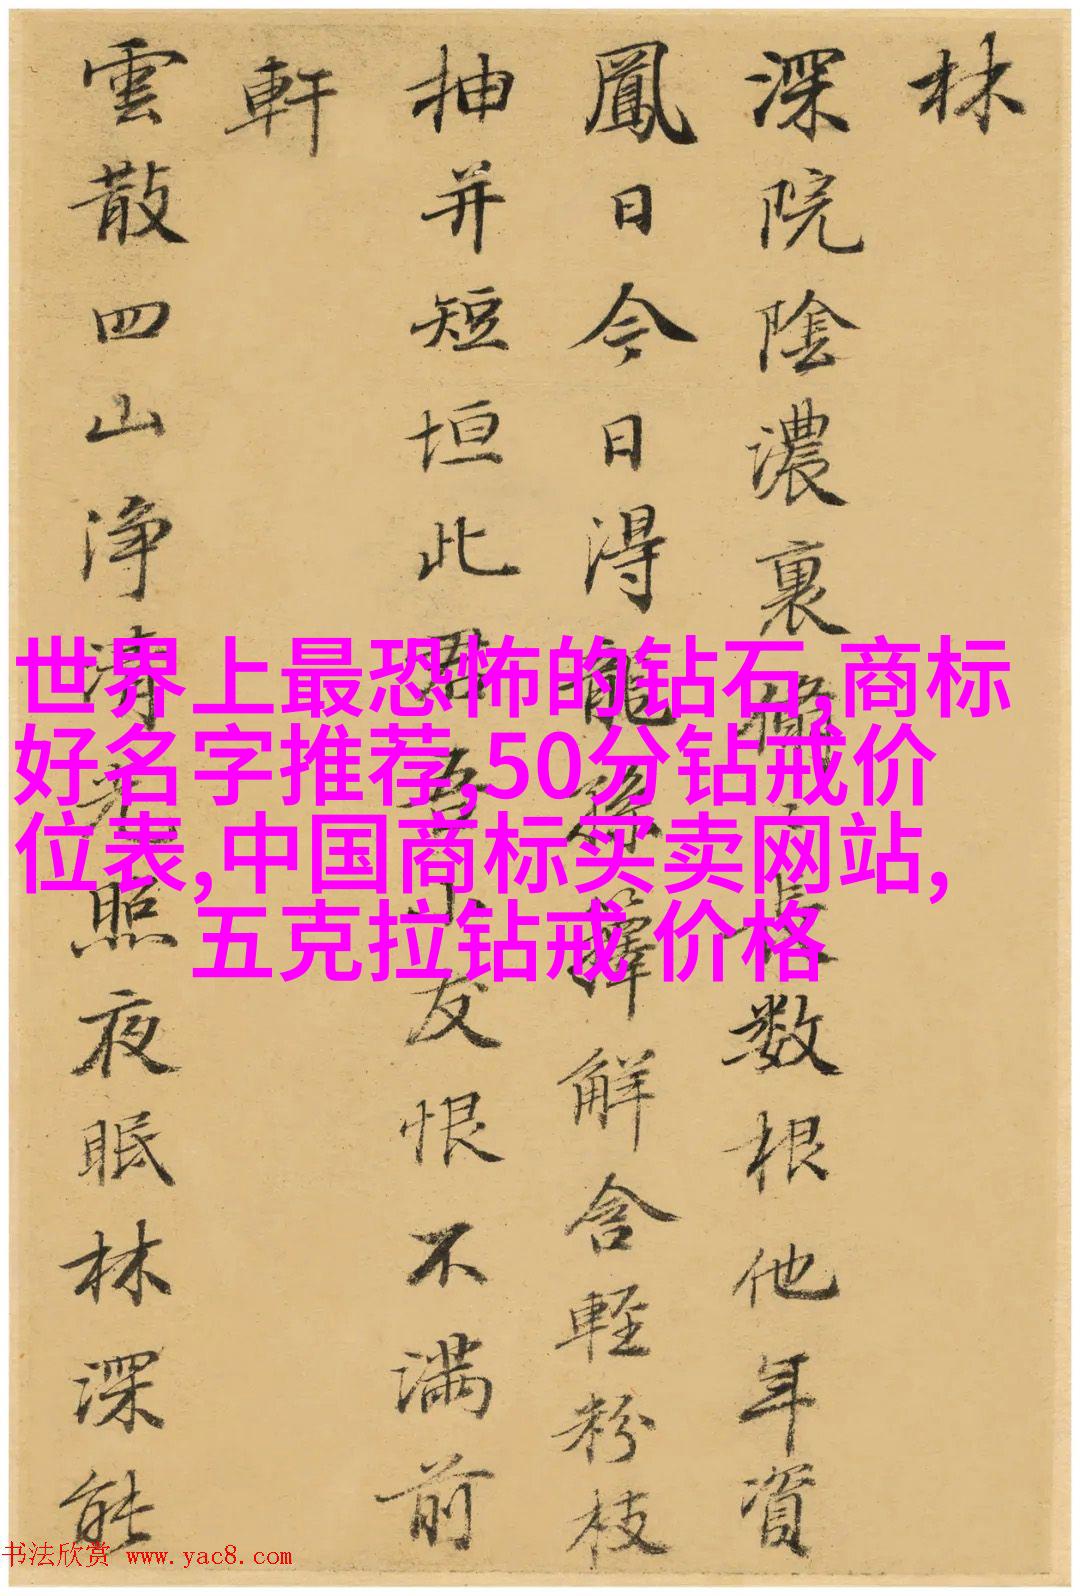 林
深院陰濃裏長數根他年資
鳳日今日得龍孫籜解含輕粉枝
抽并短垣此君吾小友恨不滿前
軒
雲散四山淨清光照夜眠林深能
世界上最恐怖的钻石,商标
好名字推荐,50分钻戒价
位表,中国商标买卖网站,
五克拉钻戒 价格
书法欣赏 www.yac8.com